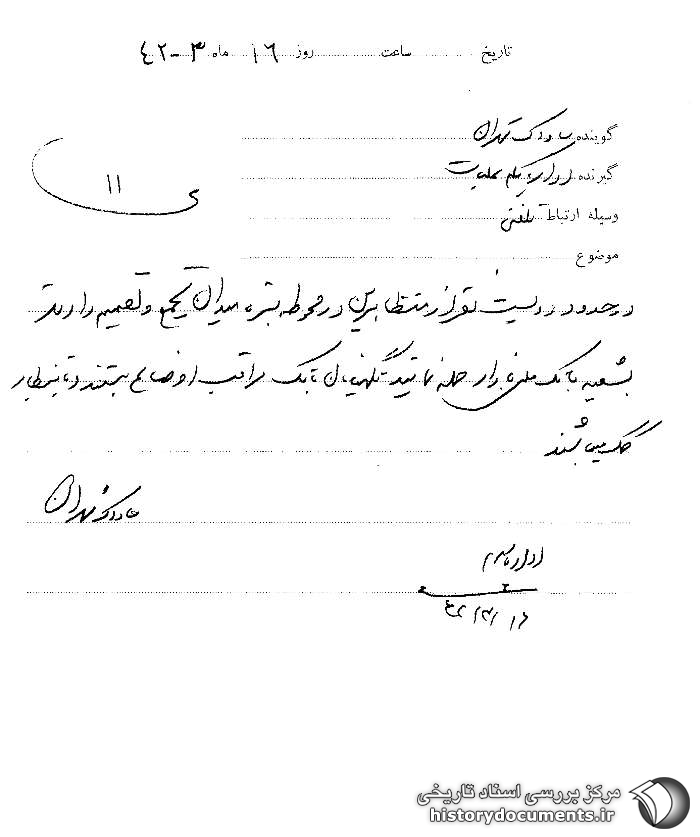 تاریخ ساعت روز ۱۶ ماه ۳-۴۲
گوینده ساواک تهران
گیرنده اداره یکم عملیات
وسیله ارتباط تلفنی
موضوع
۱۱
در حدود دویست نفر از متظاهرین در محوطه میدان تجمع و تصمیم دارند
بشعبه بانک ملی بازار حمله نمایند نگهبانان بانک مراقب اوضاع هستند و بانتظار
کمک میباشند
ساواک تهران
۱۶/۳/۴۲
مرکز بررسی اسناد تاریخی
historydocuments.ir